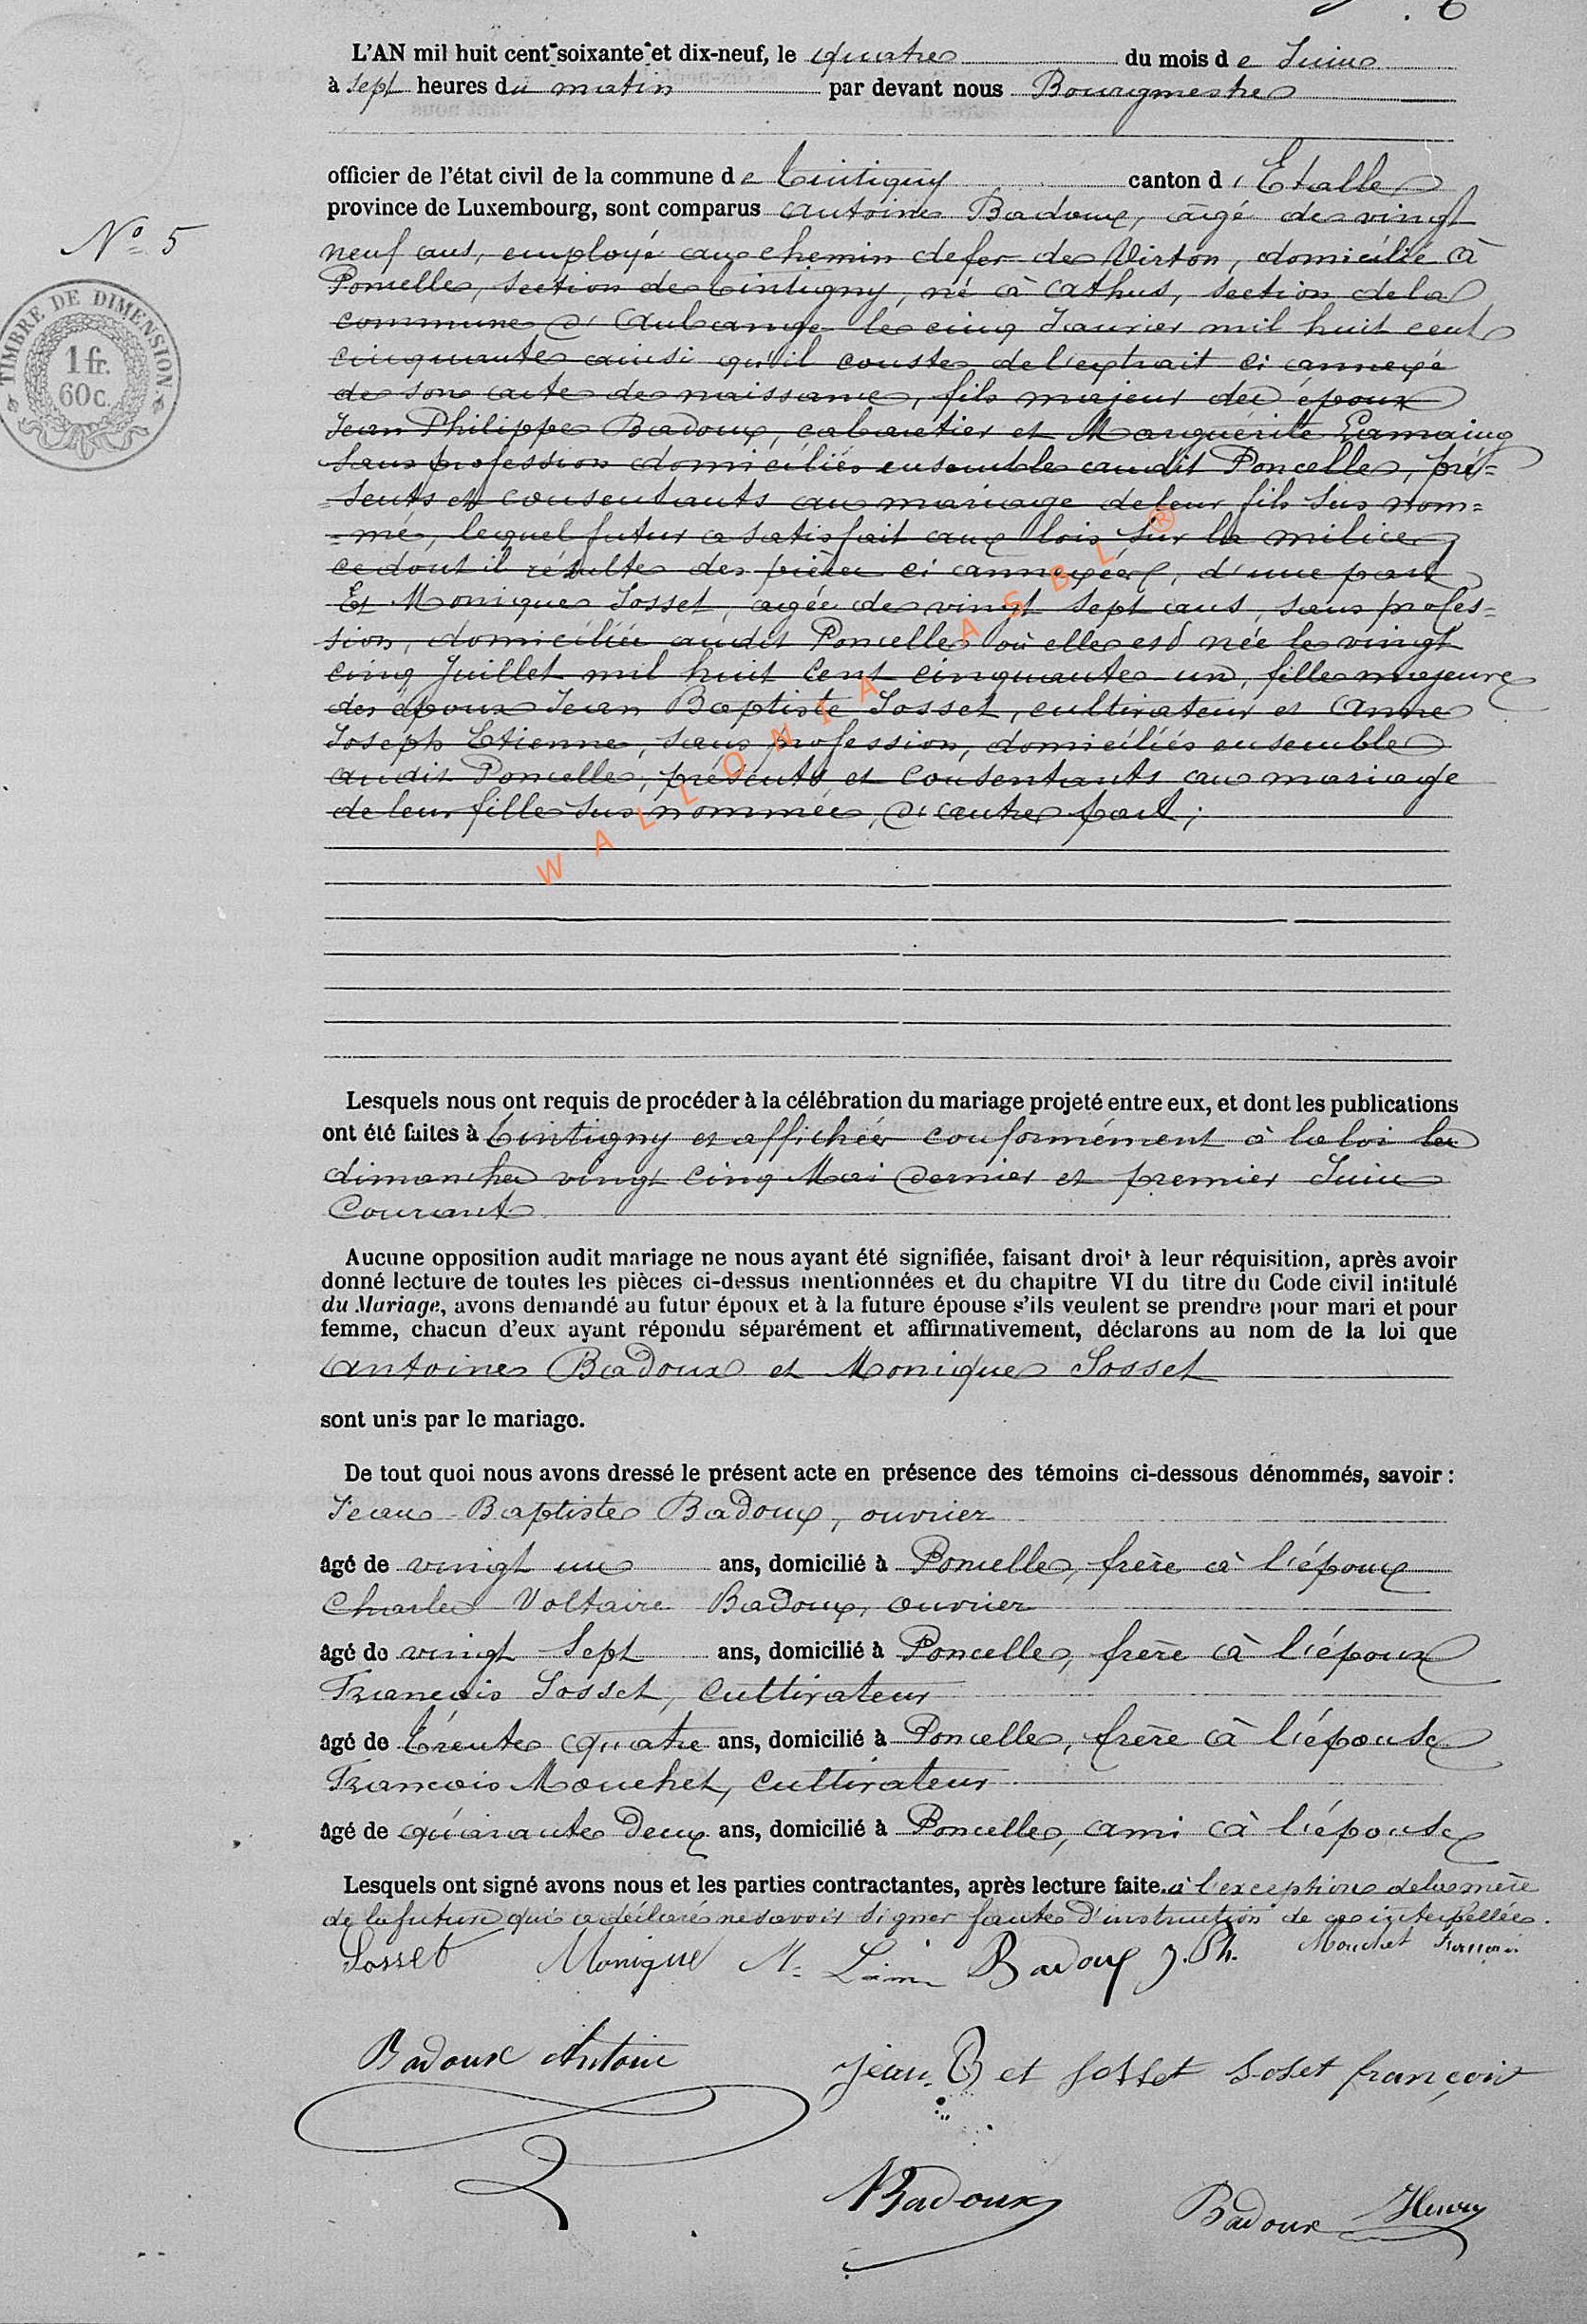 6
L'AN mil huit cent soixante et dix-neuf, le quatre du mois de Juin
à sept heures du matin par devant nous Bourgmestre
officier de l'état civil de la commune de Tintigny canton d'Etalle
province de Luxembourg, sont comparus Antoine Badoux, agé de vingt
N° 5
neuf ans, employé au chemin de fer de Virton, domicilié à
Poncelle, section de Tintigny, né à Athus, section de la
commune d'Aubange le cinq Janvier mil huit cent
cinquante ainsi qu'il conste de l'extrait ci annexé
de son acte de naissance, fils majeur des époux
Jean Philippe Badoux, cabaretier et Marguérite
sans profession domiciliés ensemble audit Poncelle, pré=
=sents et consentants au mariage de leur fils sus nom=
=mé, lequel futur a satisfait aux lois sur la milice,
ce dont il résulte des pièces ci annexées, d'une part
Et Monique Sosset, agée de vingt sept ans, sans profes=
sion, domiciliée audit Poncelle où elle est née le vingt
cinq Juillet mil huit cent cinquante un, fille majeure
des époux Jean Baptiste Sosset, cultivateur et Anne
Joseph Etienne, sans profession, domiciliés ensemble
audit Poncelle, présents et consentants au mariage
de leur fille sus nommée, d'autre part;
TIMBRE DE DIMENSION
1 fr.
60 c.
WALLONIA ASBL ®
Lesquels nous ont requis de procéder à la célébration du mariage projeté entre eux, et dont les publications
ont été faites à Tintigny et affichées conformément à la loi les
dimanches vingt cinq Mai dernier et premier Juin
Courant
Aucune opposition audit mariage ne nous ayant été signifiée, faisant droit à leur réquisition, après avoir
donné lecture de toutes les pièces ci-dessus mentionnées et du chapitre VI du titre du Code civil intitulé
du Mariage, avons demandé au futur époux et à la future épouse s'ils veulent se prendre pour mari et pour
femme, chacun d'eux ayant répondu séparément et affirmativement, déclarons au nom de la loi que
Antoine Badoux et Monique Sosset
sont unis par le mariage.
De tout quoi nous avons dressé le présent acte en présence des témoins ci-dessous dénommés, savoir :
Jean Baptiste Badoux, ouvrier
âgé de vingt un ans, domicilié à Poncelle, frère à l'époux
Charles Voltaire Badoux, ouvrier
âgé de vingt sept ans, domicilié à Poncelle, frère à l'époux
François Sosset, cultivateur
âgé de trente quatre ans, domicilié à Poncelle, frère à l'épouse
François Mouchet, cultivateur
âgé de quarante deux ans, domicilié à Poncelle, ami à l'épouse
Lesquels ont signé avons nous et les parties contractantes, après lecture faite. à l'exception de la mère
de la future qui a déclaré ne savoir signer faute d'instruction de ce interpellée.
Sosset Monique M. Badoux J. Ph. Mouchet François
Badoux Antoine
Jean B et Sosset Soset françois
Badoux
Badoux Henry